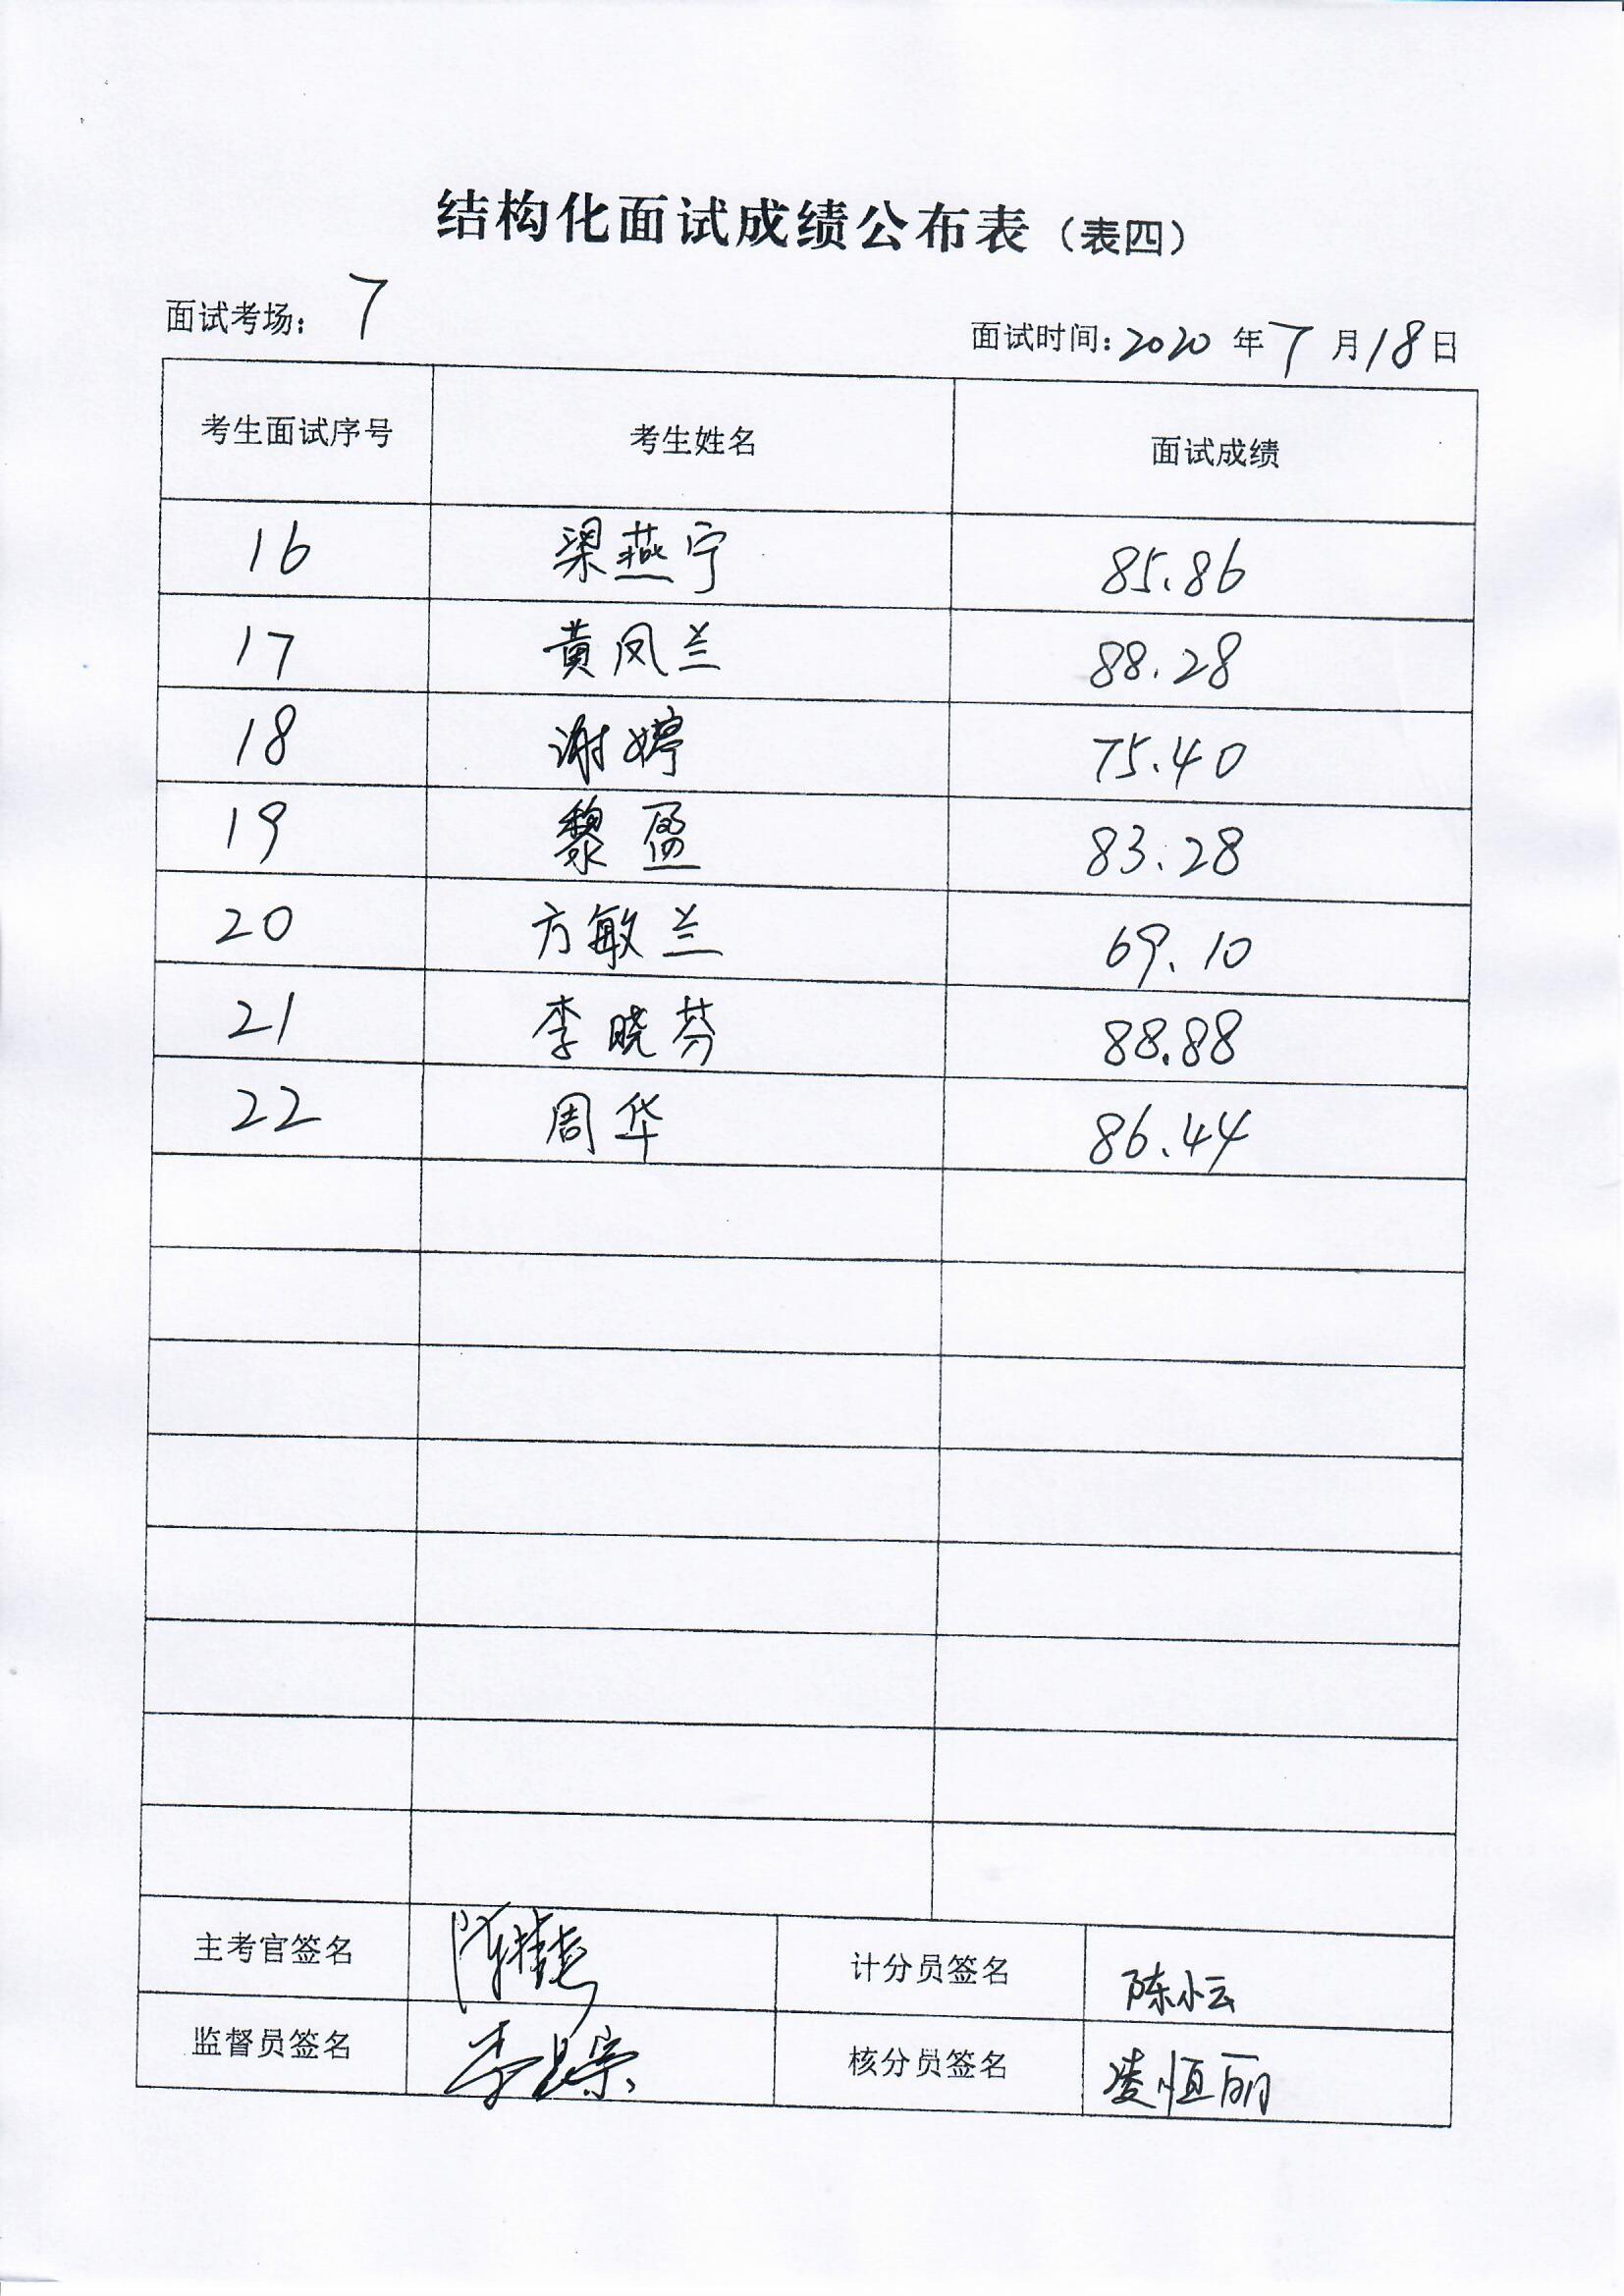 结构化面试成绩公布表（表四）
面试考场： 7 面试时间：2020 年 7 月 18 日
考生面试序号 考生姓名 面试成绩
16 梁燕宁 85.86
17 黄凤兰 88.28
18 谢婷 75.40
19 黎盈 83.28
20 方敏兰 69.10
21 李晓芬 88.88
22 周华 86.44
主考官签名 计分员签名 陈小云
监督员签名 核分员签名 凌恒丽